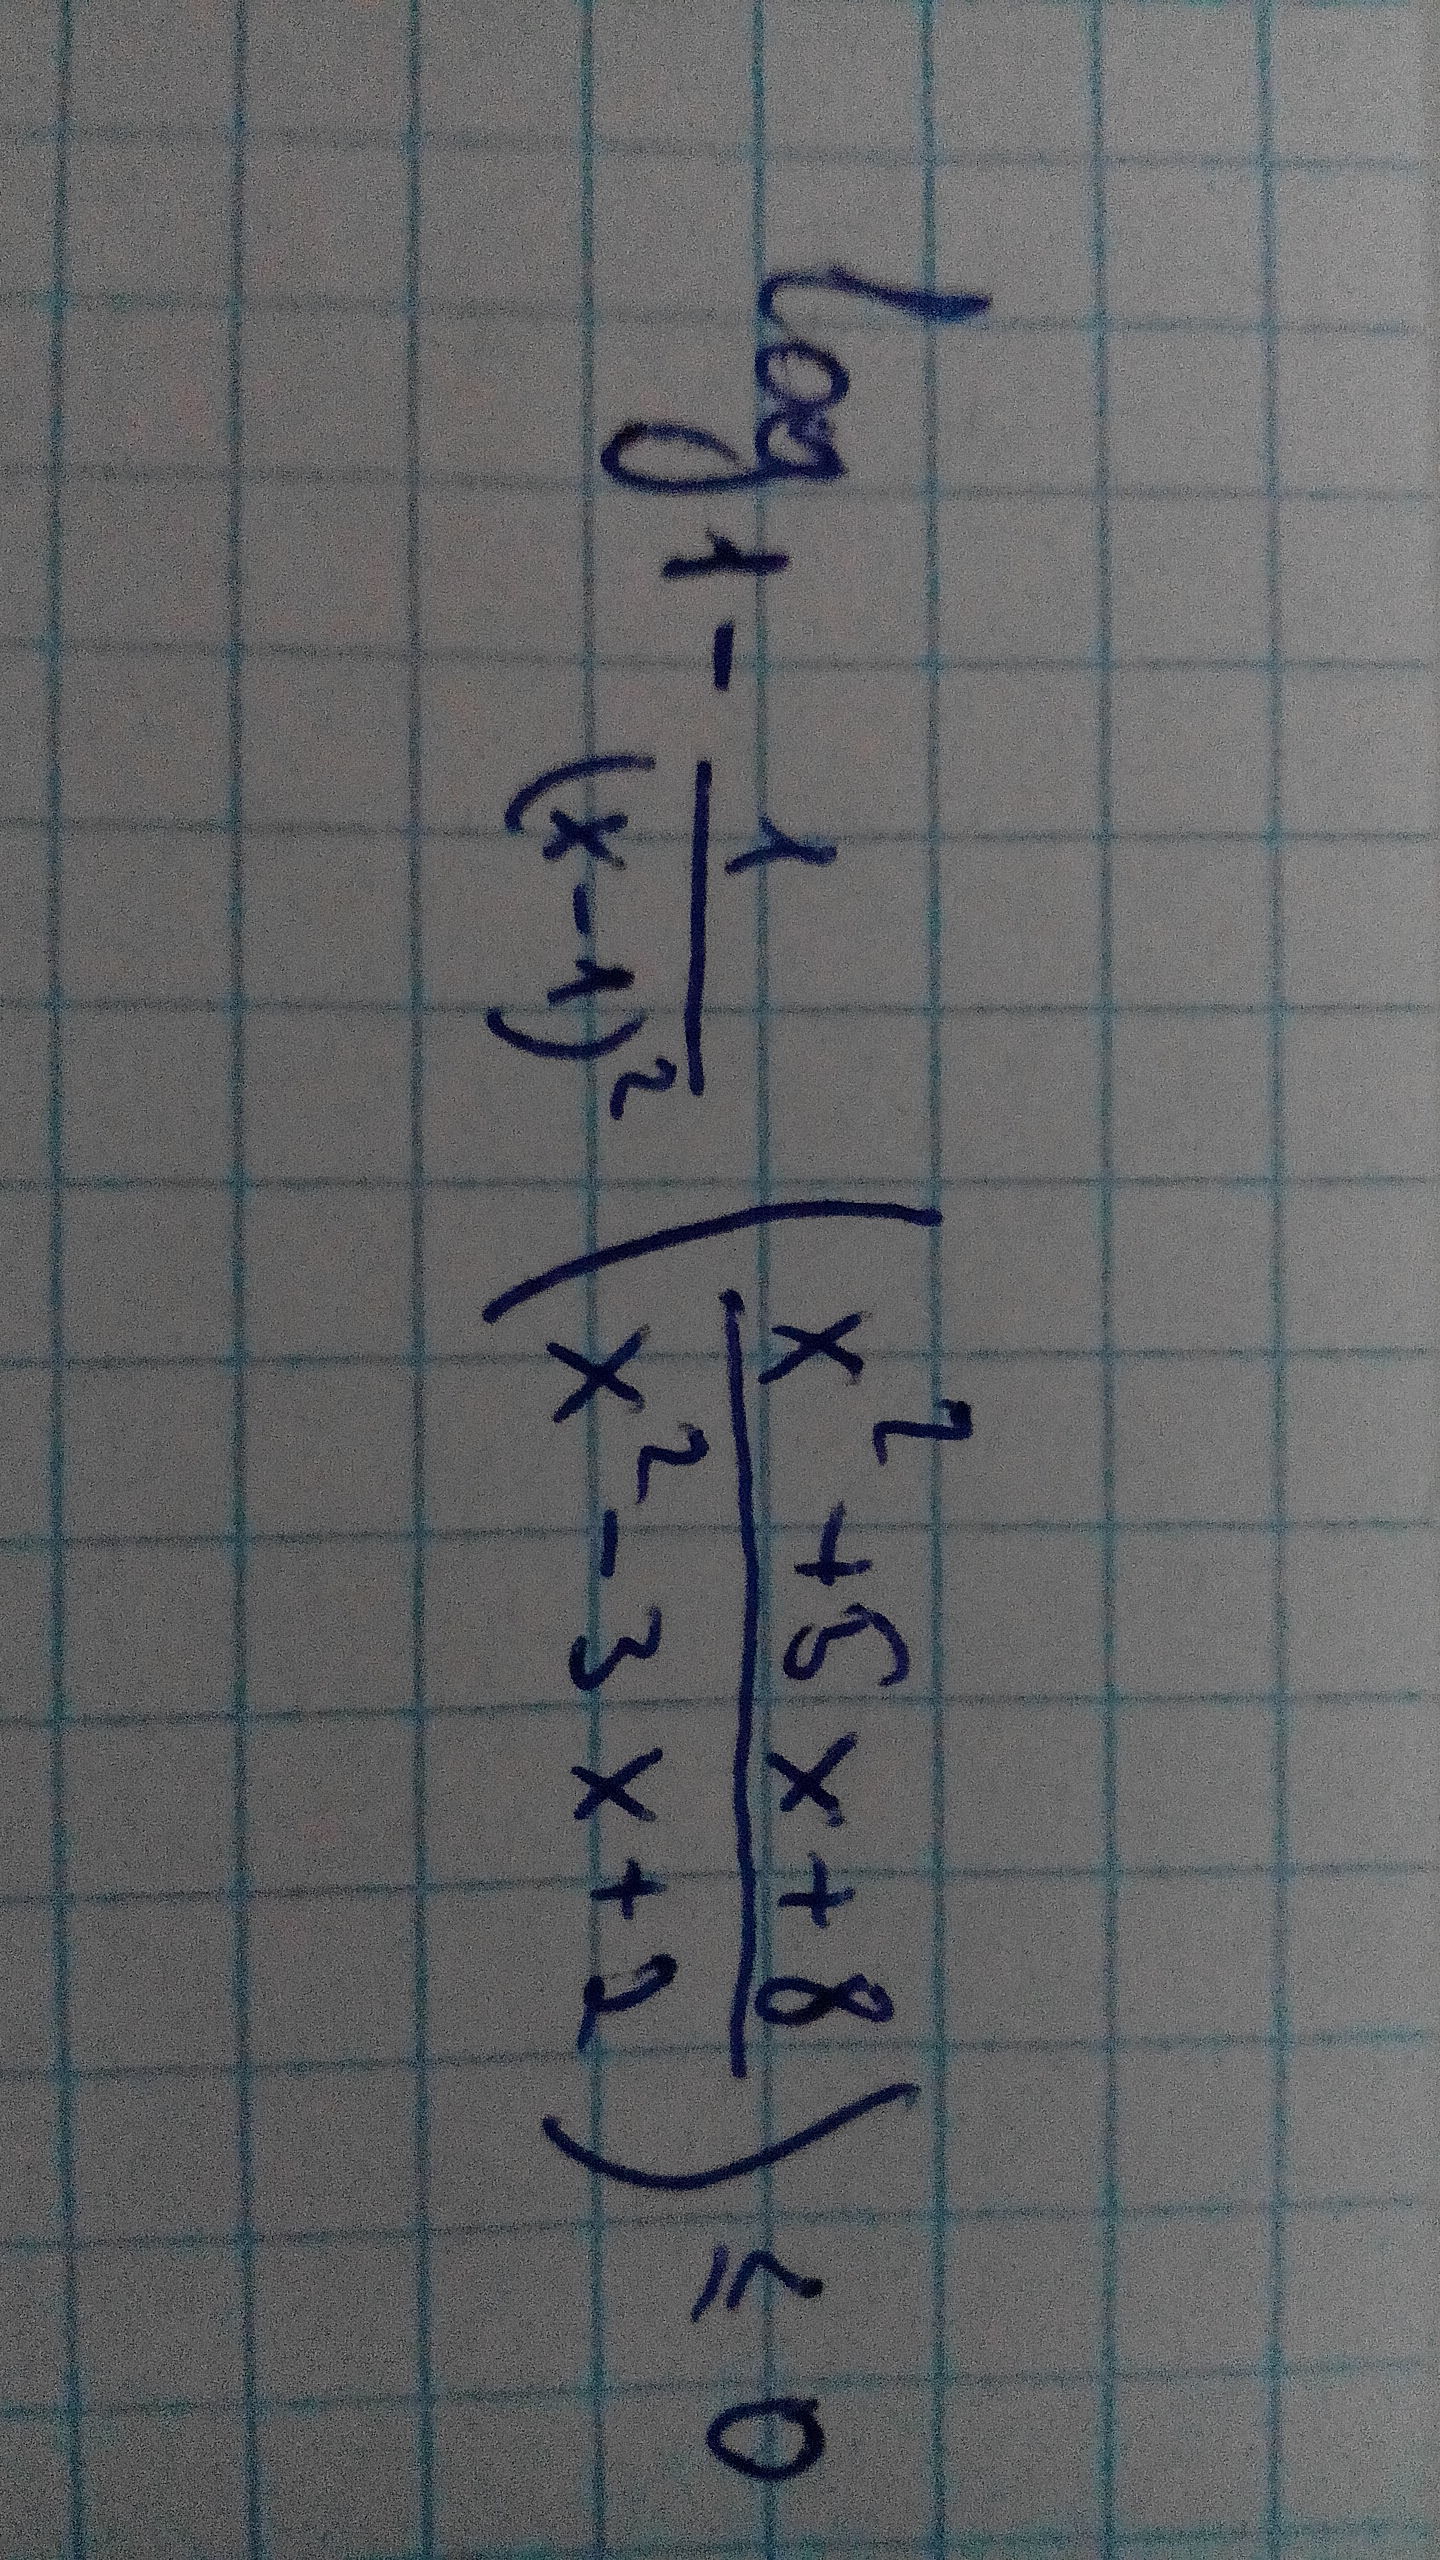 log 1 - 1/(x-1)² ((x² + 5x + 8)/(x² - 3x + 2)) ≥ 0